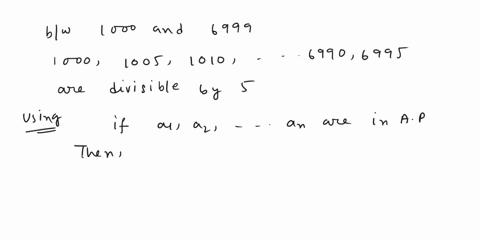 b/w 1000 and 6999
1000, 1005, 1010, - - - - 6990, 6995
are divisible by 5
Using if a1, a2, - - - - an are in A.P
Then,